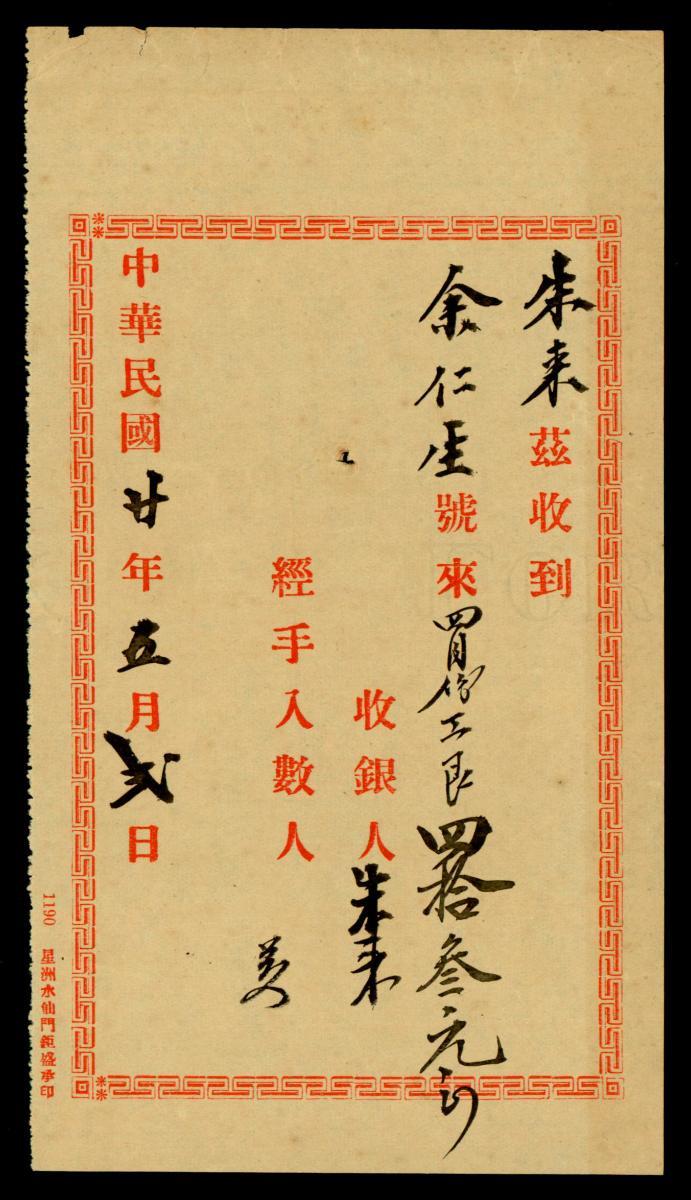 朱来茲收到
余仁生號來四月份工艮四拾叁元
收銀人朱来
經手入數人
中華民國廿年五月弍日
1190 星洲水仙門鉅盛承印